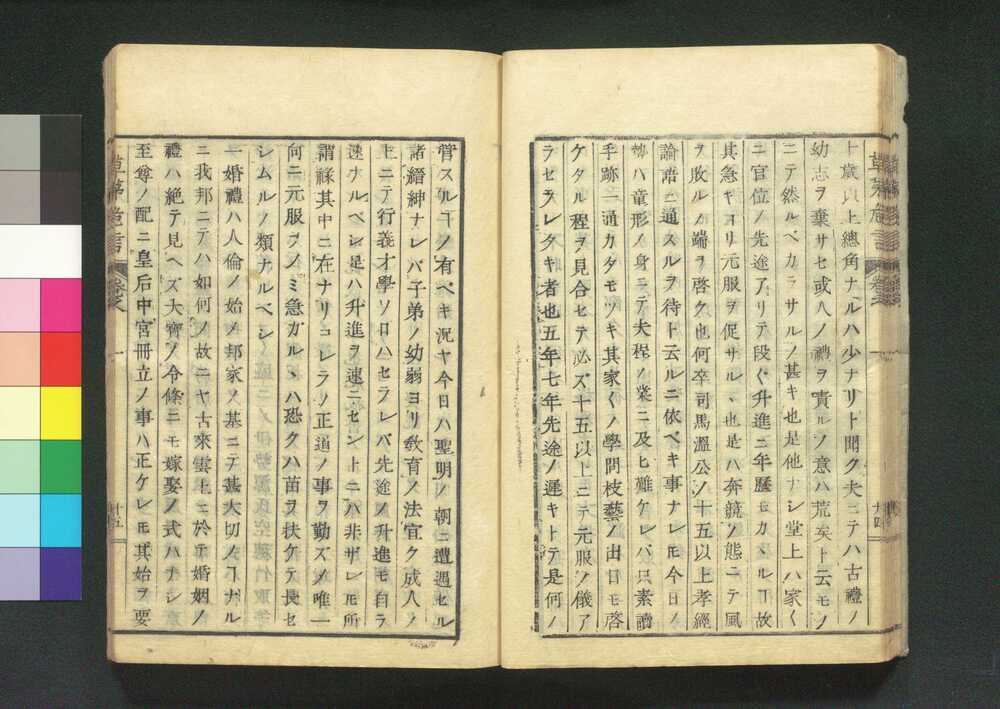 十歳以上總角ナルハ少ナリト聞ク夫ニテハ古禮ノ
幼志ヲ棄サセ或人ノ禮ヲ責ルノ意ハ荒矣ト云モノ
ニテ然ルベカラサルノ甚キ也是他ナシ堂上ハ家〱
ニ官位ノ先途アリテ段〱升進ニ年歴モカヽルヿ故
其急キヨリ元服ヲ促サルヽ也是ハ奔競ノ態ニテ風
ヲ敗ルノ端ヲ啓ク也何卒司馬溫公ノ十五以上孝經
論語ニ通スルヲ待ト云ルニ依ベキ事ナレモ今日ノ
勢ハ童形ノ身ニテ夫程ノ業ニ及ヒ難ケレバ只素讀
手跡一通カタモツキ其家〱ノ學問枝藝ノ出日モ啓
ケタル程ヲ見合セテ必ズ十五以上ニテ元服ノ儀ア
ラセラレタキ者也五年七年先途ノ遲キトテ是何ノ
管スルヿノ有ベキ況ヤ今日ハ聖明ノ朝ニ遭遇セル
諸縉紳ナレバ子弟ノ幼弱ヨリ敎育ノ法宜ク成人ノ
上ニテ行義才學ソロハセラレバ先途ノ升進モ自ラ
速ナルベシ是ハ升進ヲ速ニセントニハ非ザレモ所
謂祿其中ニ在ナリコレラノ正道ノ事ヲ勤ズメ唯一
何ニ元服ヲノミ急カルヽハ恐クハ苗ヲ扶ケテ長セ
シムルノ類ナルベシ
一婚禮ハ人倫ノ始メ邦家ノ基ニテ甚大切ノヿナル
ニ我邦ニテハ如何ノ故ニヤ古來雲上ニ於テ婚姻ノ
禮ハ絶テ見ヘズ大寶ノ令條ニモ嫁娶ノ式ハナシ
至尊ノ配ニ皇后中宮冊立ノ事ハ正ケレモ其始ヲ要
草茅危言
卷之一
十四
草茅危言
卷之一
十五